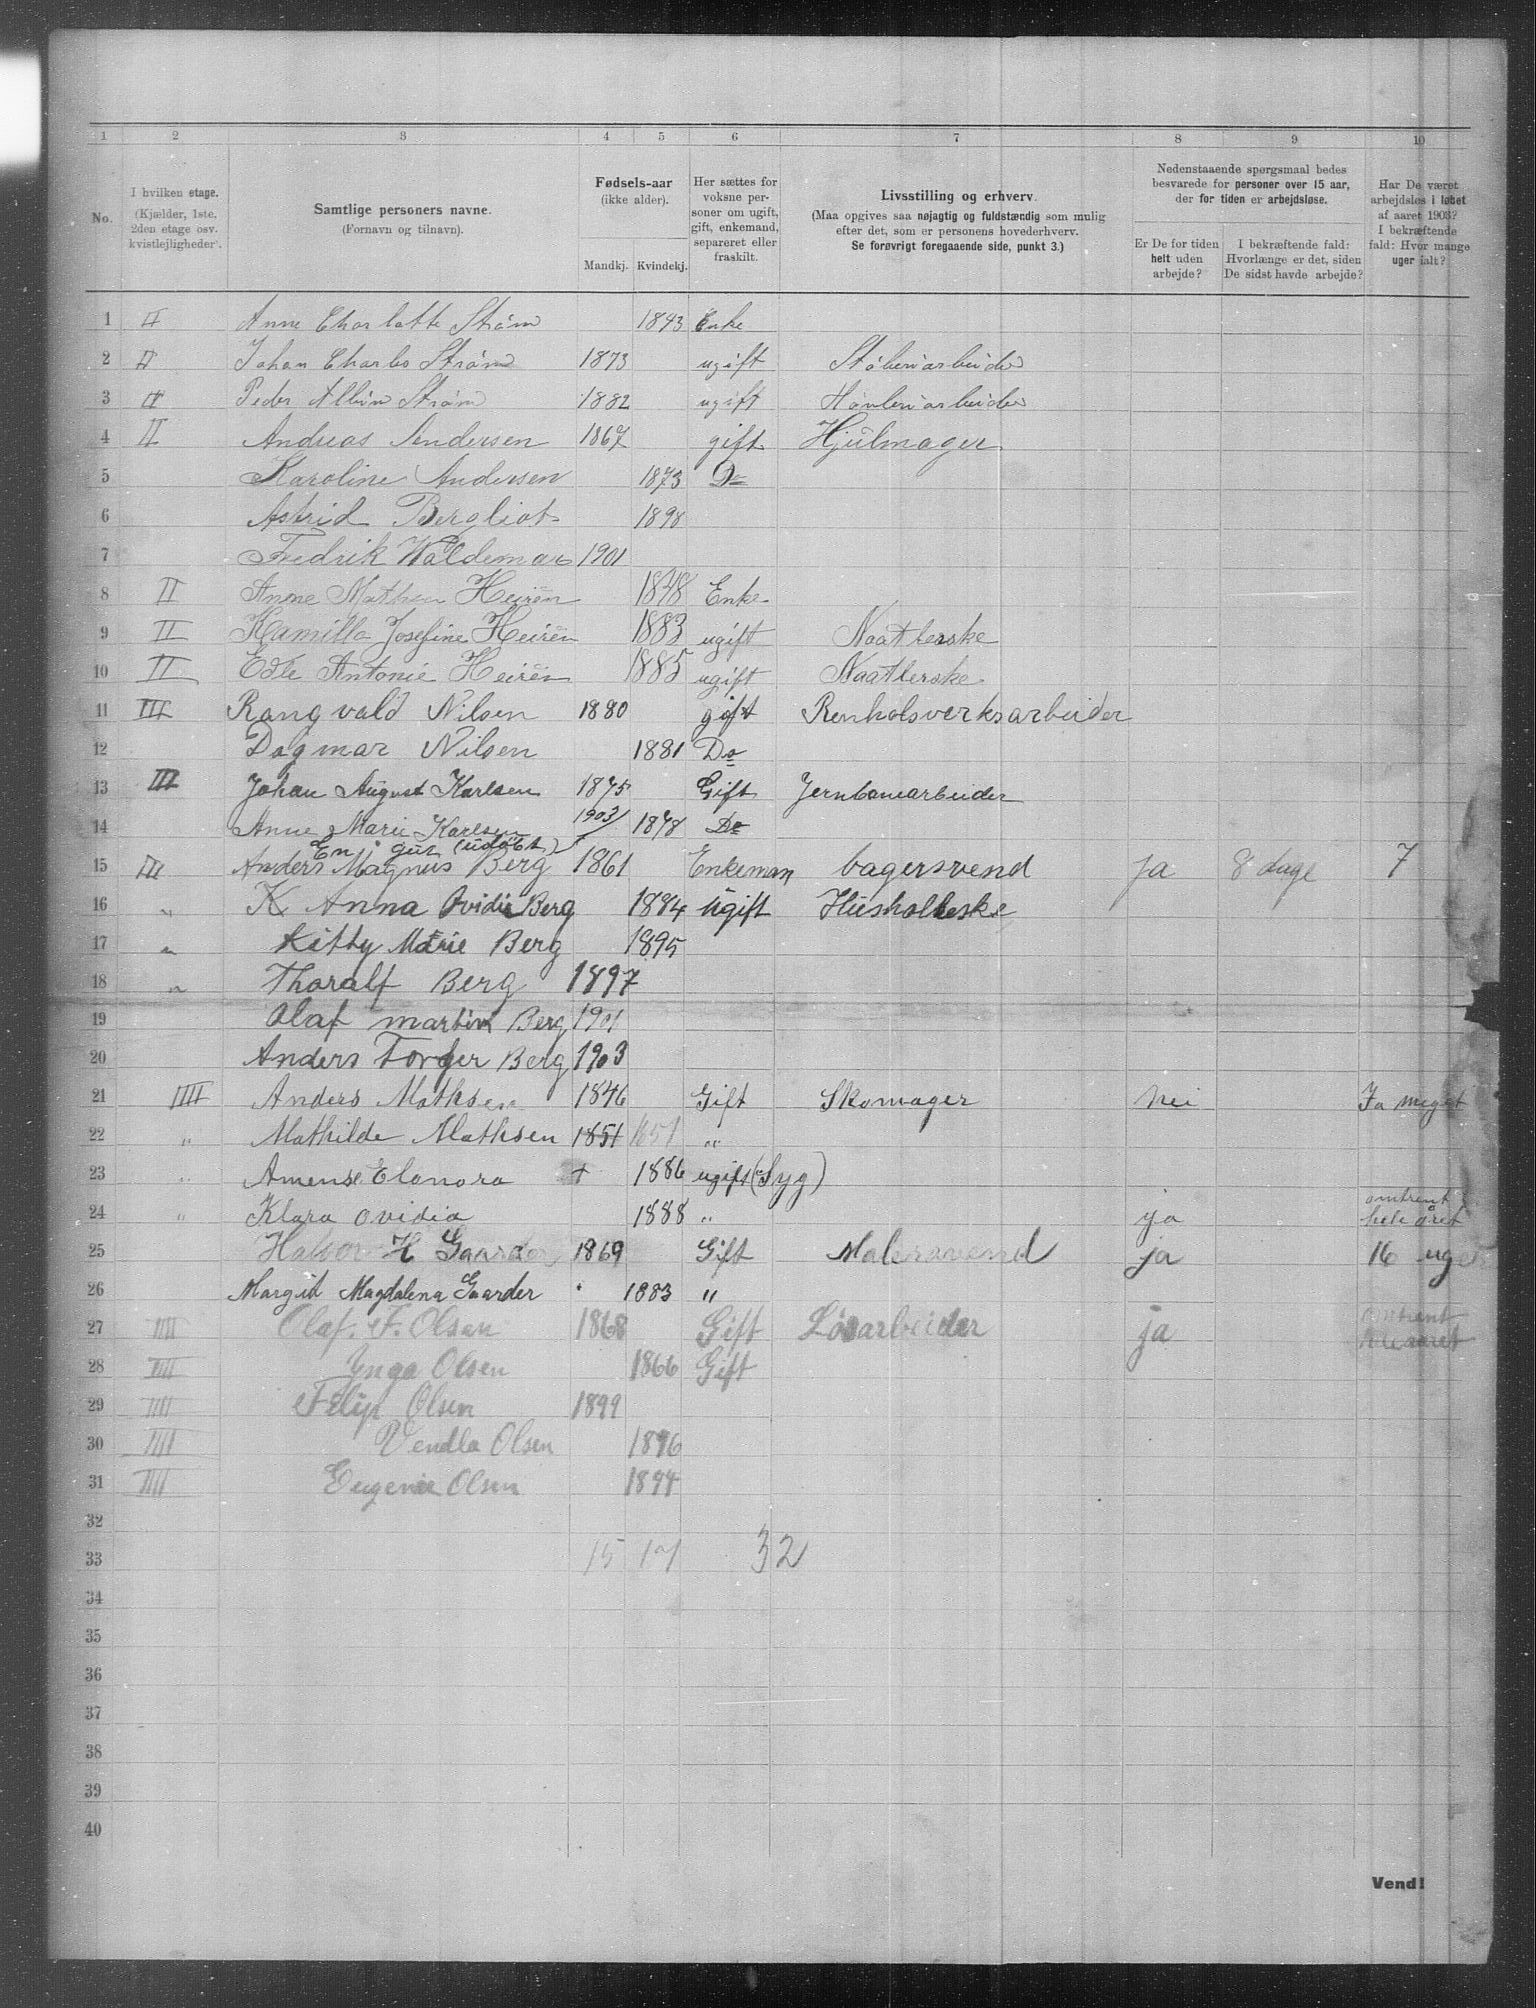 1 2 3 4 5 6 7 8 9 10
No.
I hvilken etage.
(Kjælder, 1ste, 2den etage osv. kvistlejligheder).
Samtlige personers navne.
(Fornavn og tilnavn).
Fødsels-aar
(ikke alder).
Mandkj. Kvindekj.
Her sættes for voksne personer om ugift, gift, enkemand, separeret eller fraskilt.
Livsstilling og erhverv.
(Maa opgives saa nøjagtig og fuldstændig som mulig efter det, som er personens hovederhverv.
Se forøvrigt foregaaende side, punkt 3.)
Nedenstaaende spørgsmaal bedes besvarede for personer over 15 aar, der for tiden er arbejdsløse.
Er De for tiden helt uden arbejde?
I bekræftende fald: Hvorlænge er det, siden De sidst havde arbejde?
Har De været arbejdsløs i løbet af aaret 1903? I bekræftende fald: Hvor mange uger ialt?
1 II Anne Charlotte Strøm 1843 Enke
2 II Johan Charles Strøm 1873 ugift Støberiarbeider
3 II Peder Albin Strøm 1882 ugift Høvleriarbeider
4 II Andreas Andersen 1867 gift Hjulmager
5 Karoline Andersen 1873 Do
6 Astrid Bergliot 1898
7 Fredrik Waldemar 1901
8 II Anne Mathea Heirën 1848 Enke
9 II Kamilla Josefine Heirën 1883 ugift Naatlerske
10 II Edle Antonie Heirën 1885 ugift Naatlerske
11 III Rangvald Nilsen 1880 gift Renholsverksarbeider
12 Dagmar Nilsen 1881 Do
13 III Johan August Karlsen 1875 Gift Jernbanearbeider
14 Anne Marie Karlsen 1903 1878 Do
En gut (udøbt)
15 III Anders Magnus Berg 1861 Enkeman bagersvend ja 8 dage 7
16 " K Anna Ovidie Berg 1884 ugift Husholderske
17 " Kitty Marie Berg 1895
18 " Thoralf Berg 1897
19 Olaf martin Berg 1901
20 Anders Torger Berg 1903
21 IIII Anders Mathsen 1846 Gift Skomager Nei Ja meget
22 " Mathilde Mathsen 1851 1851 "
23 " Amense Elonora + 1886 ugift (Syg)
24 " Klara Ovidia 1888 " ja omtrent hele året
25 Halvor H Gaarder 1869 Gift Malersvend ja 16 uger
26 Margit Magdalena Gaarder 1883 "
27 IIII Olaf. F. Olsen 1868 Gift Løsarbeider ja omtrent hele aaret
28 IIII Ynga Olsen 1866 Gift
29 IIII Filip Olsen 1899
30 IIII Vendla Olsen 1896
31 IIII Eugenie Olsen 1894
32
33 15 17 32
34
35
36
37
38
39
40
Vend!